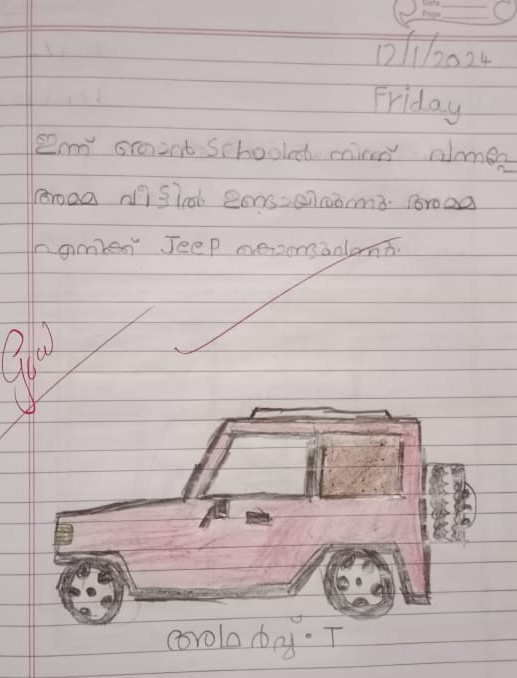 Date
Page
12/1/2024
Friday
ഇന്ന് ഞാൻ Schoolൽ നിന്ന് വന്നപ്പോ
അമ്മ വീട്ടിൽ ഉണ്ടായിരുന്നു. അമ്മ
എനിക്ക് Jeep കൊണ്ടുവന്നു.
Good